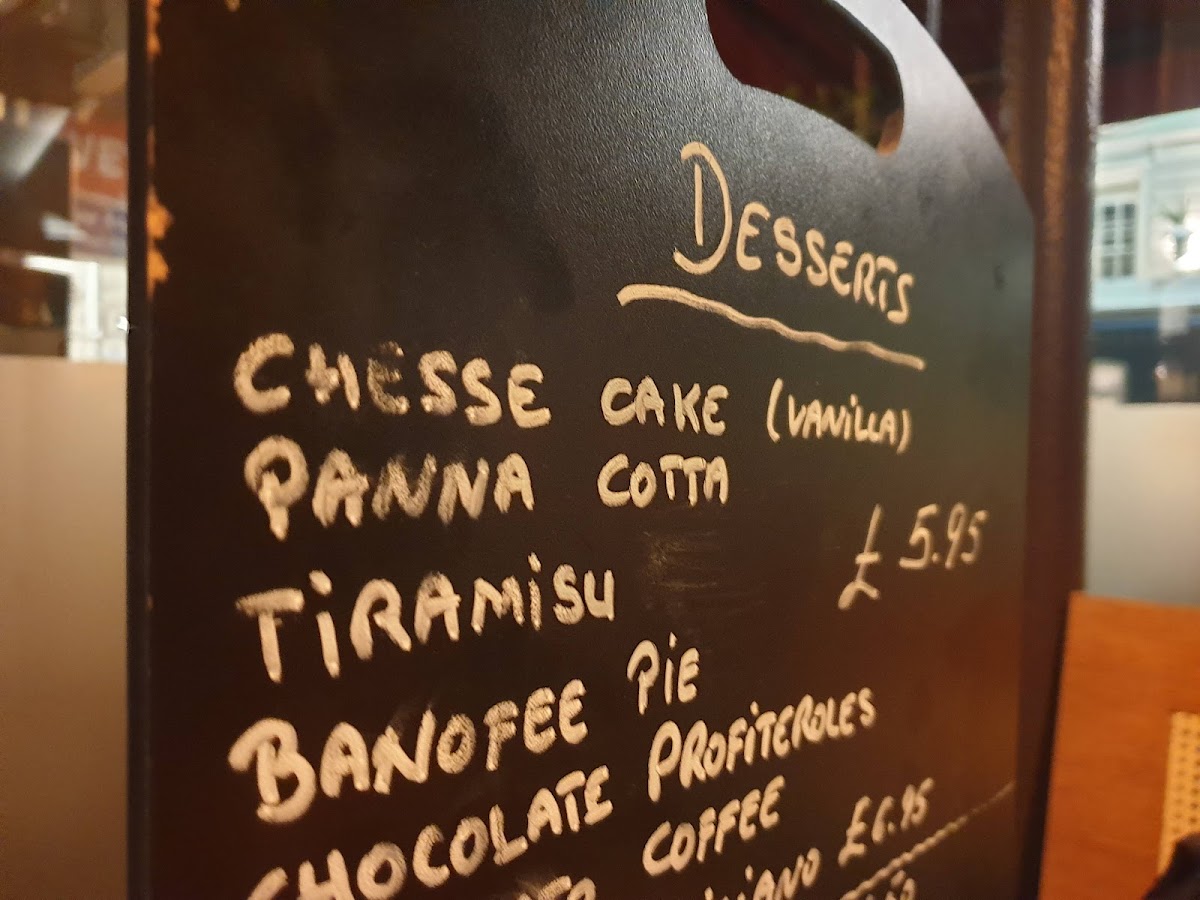 DESSERTS
CHESSE CAKE (VANILLA)
PANNA COTTA
£5.95
TIRAMISU
BANOFEE PIE
CHOCOLATE PROFITEROLES
COFFEE
£6.95